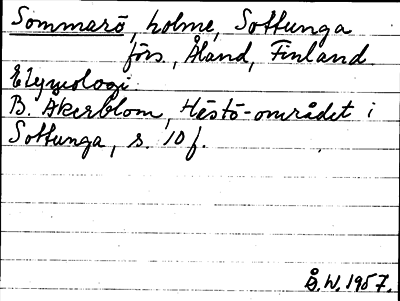 Sommarö, holme, Sottunga
förs., Åland, Finland.
Etymologi:
B. Åkerblom, Hästö-området i
Sottunga, s. 10 f.
Å.W. 1957.